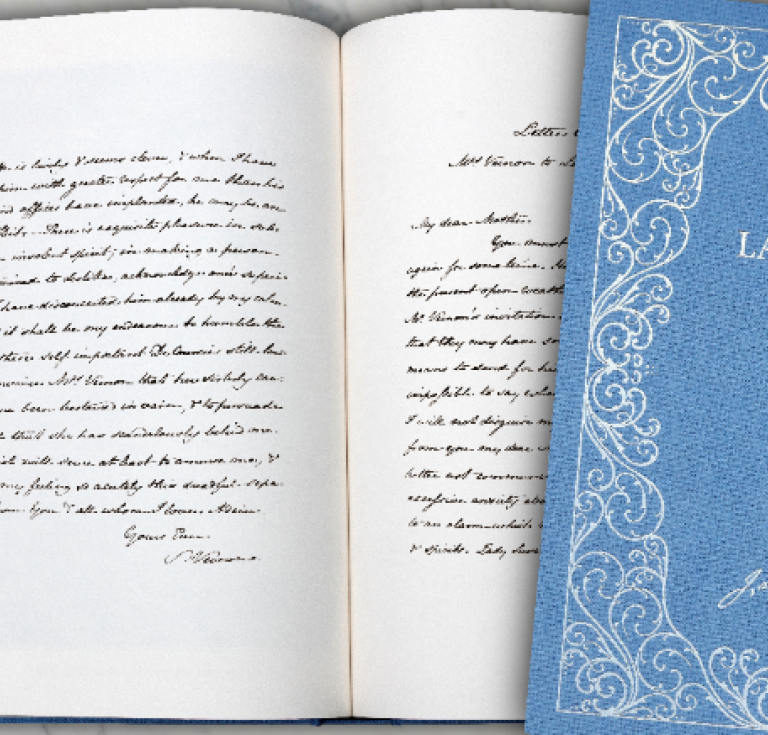 is lively & seems clever, & when I have
him with greater respect for me than his
offices have implanted, he may be an
flirt. There is exquisite pleasure in sub-
insolent spirit; in making a person
to dislike, acknowledge one's superi-
I have disconcerted him already by my calm
it shall be my endeavour to humble the
these self important De Courcies still low-
Mrs Vernon that her sisterly cau-
been bestowed in vain, & to persuade
that she has scandalously belied me.
will serve at least to amuse me, &
my feeling so acutely this dreadful sepa-
You & all whom I love. Adieu
Yours Ever
S. Vernon
Letter
Mrs Vernon to
My dear Mother
You must
again for some time.
the present open weath
Mr. Vernon's invitation
that they may have so
means to send for his
impossible to say
I will not disguise
from you my dear
letter not commun
excessive anxiety
to an alarm which
& spirits. Lady Sus
LA